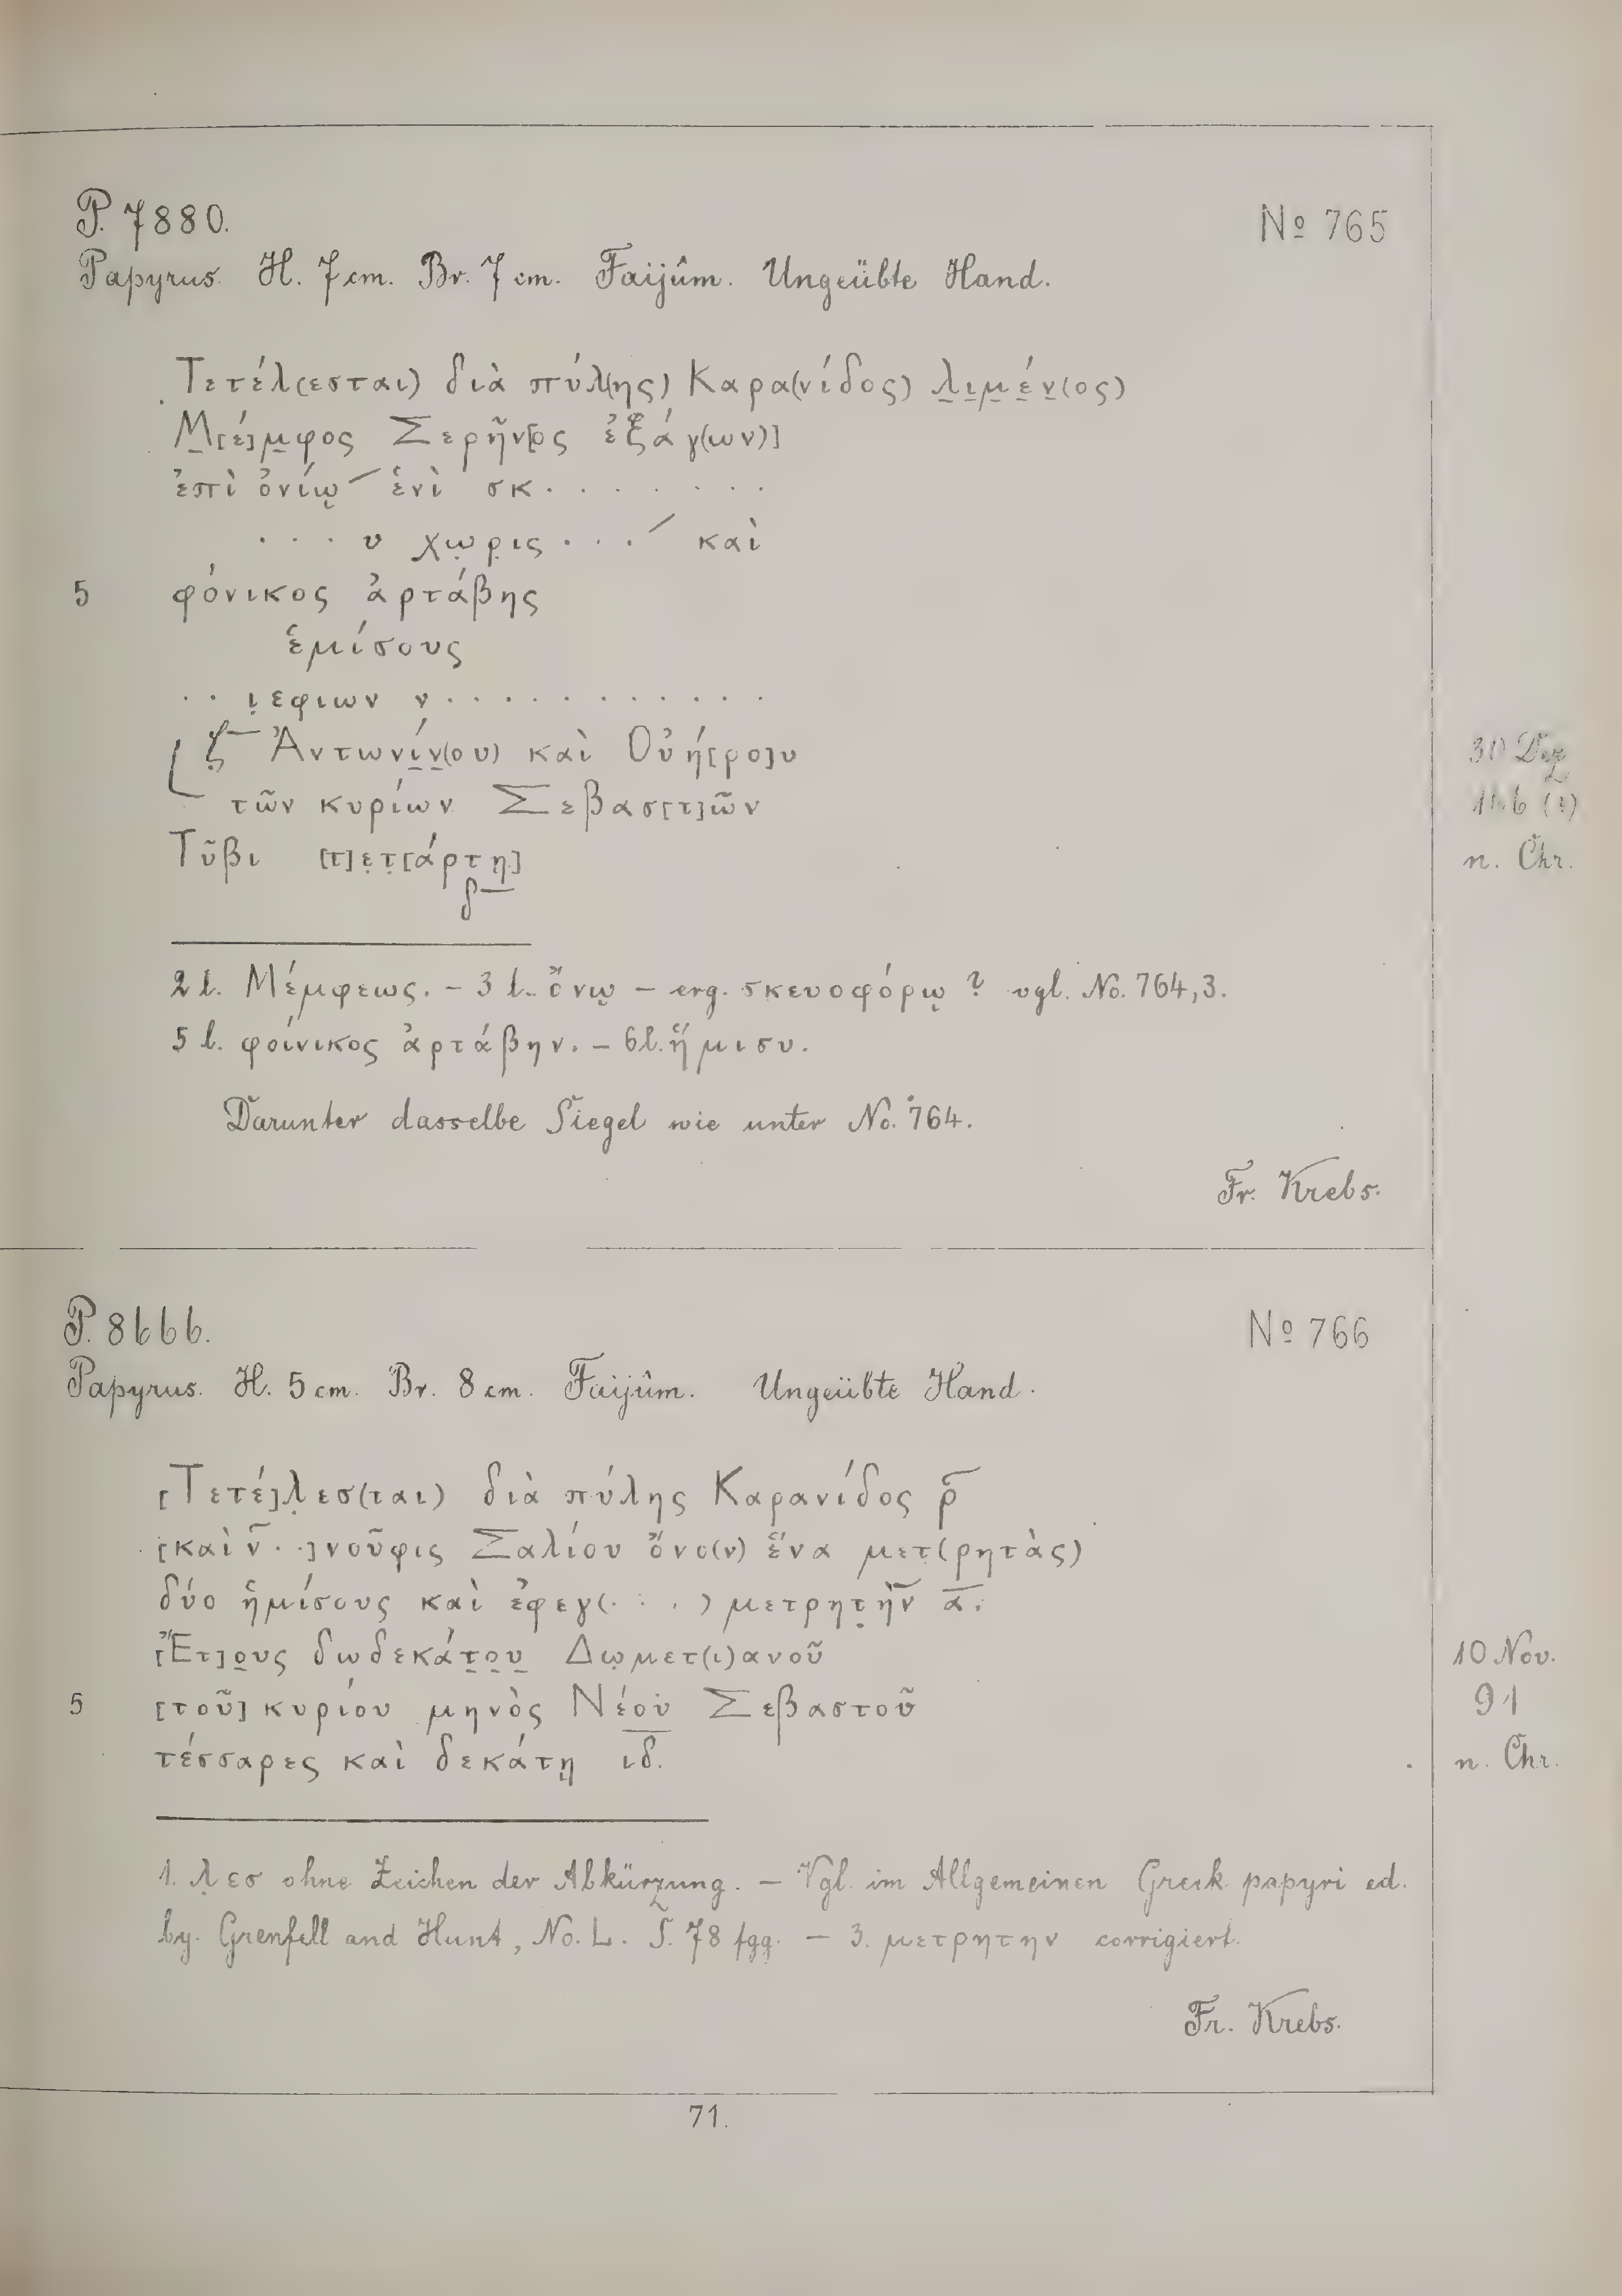 P. 7880.
No 765
Papyrus. H. 7 cm. Br. 7 cm. Faijûm. Ungeübte Hand.
Τετέλ(εσται) διὰ πύλ(ης) Καρα(νίδος) λ̣ι̣μ̣έ̣ν̣(ος)
Μ̣[έ]μ̣φος Σερῆν[ο]ς ἐξάγ(ων)]
ἐπὶ ὀνίῳ ἑνὶ σκ. . . . . . .
. . . υ χω̣ρ̣ις . . . καὶ
5 φόνικος ἀρτάβης
ἑμίσους
. . ι̣εφιων ν . . . . . . . . . .
ζ̣ Ἀντωνί̣ν̣(ου) καὶ Οὐή[ρο]υ
τῶν κυρίων Σεβασ[τ]ῶν
Τῦβι [τ]ε̣τ̣[άρτῃ]
δ
30 Dez
166 (?)
n. Chr.
2 l. Μέμφεως. – 3 l. ὄνῳ – erg. σκευοφόρῳ ? vgl. No. 764,3.
5 l. φοίνικος ἀρτάβην. – 6 l. ἥμισυ.
Darunter dasselbe Siegel wie unter No. 764.
Fr. Krebs.
P. 8666.
No 766
Papyrus. H. 5 cm. Br. 8 cm. Faijûm. Ungeübte Hand.
[Τετέ]λ̣εσ(ται) διὰ πύλης Καρανίδος ρ̅
[καὶ ν̅ . .]νοῦφις Σαλίου ὄνο(ν) ἕνα μετ(ρητὰς)
δύο ἡμίσους καὶ ἐφεγ(. . .) μετρητ̣ὴν α̅.
[Ἔτ]ο̣υς δωδεκάτ̣ο̣υ̣ Δω̣μετ(ι)ανοῦ
5 [τοῦ] κυρίου μηνὸς Νέου Σεβαστοῦ
τέσσαρες καὶ δεκάτῃ ι̅δ̅.
10 Nov.
91
n. Chr.
1. λ̣εσ ohne Zeichen der Abkürzung. – Vgl. im Allgemeinen Greek papyri ed.
by. Grenfell and Hunt, No. L. S. 78 fgg. – 3. μετρητην corrigiert.
Fr. Krebs.
71.